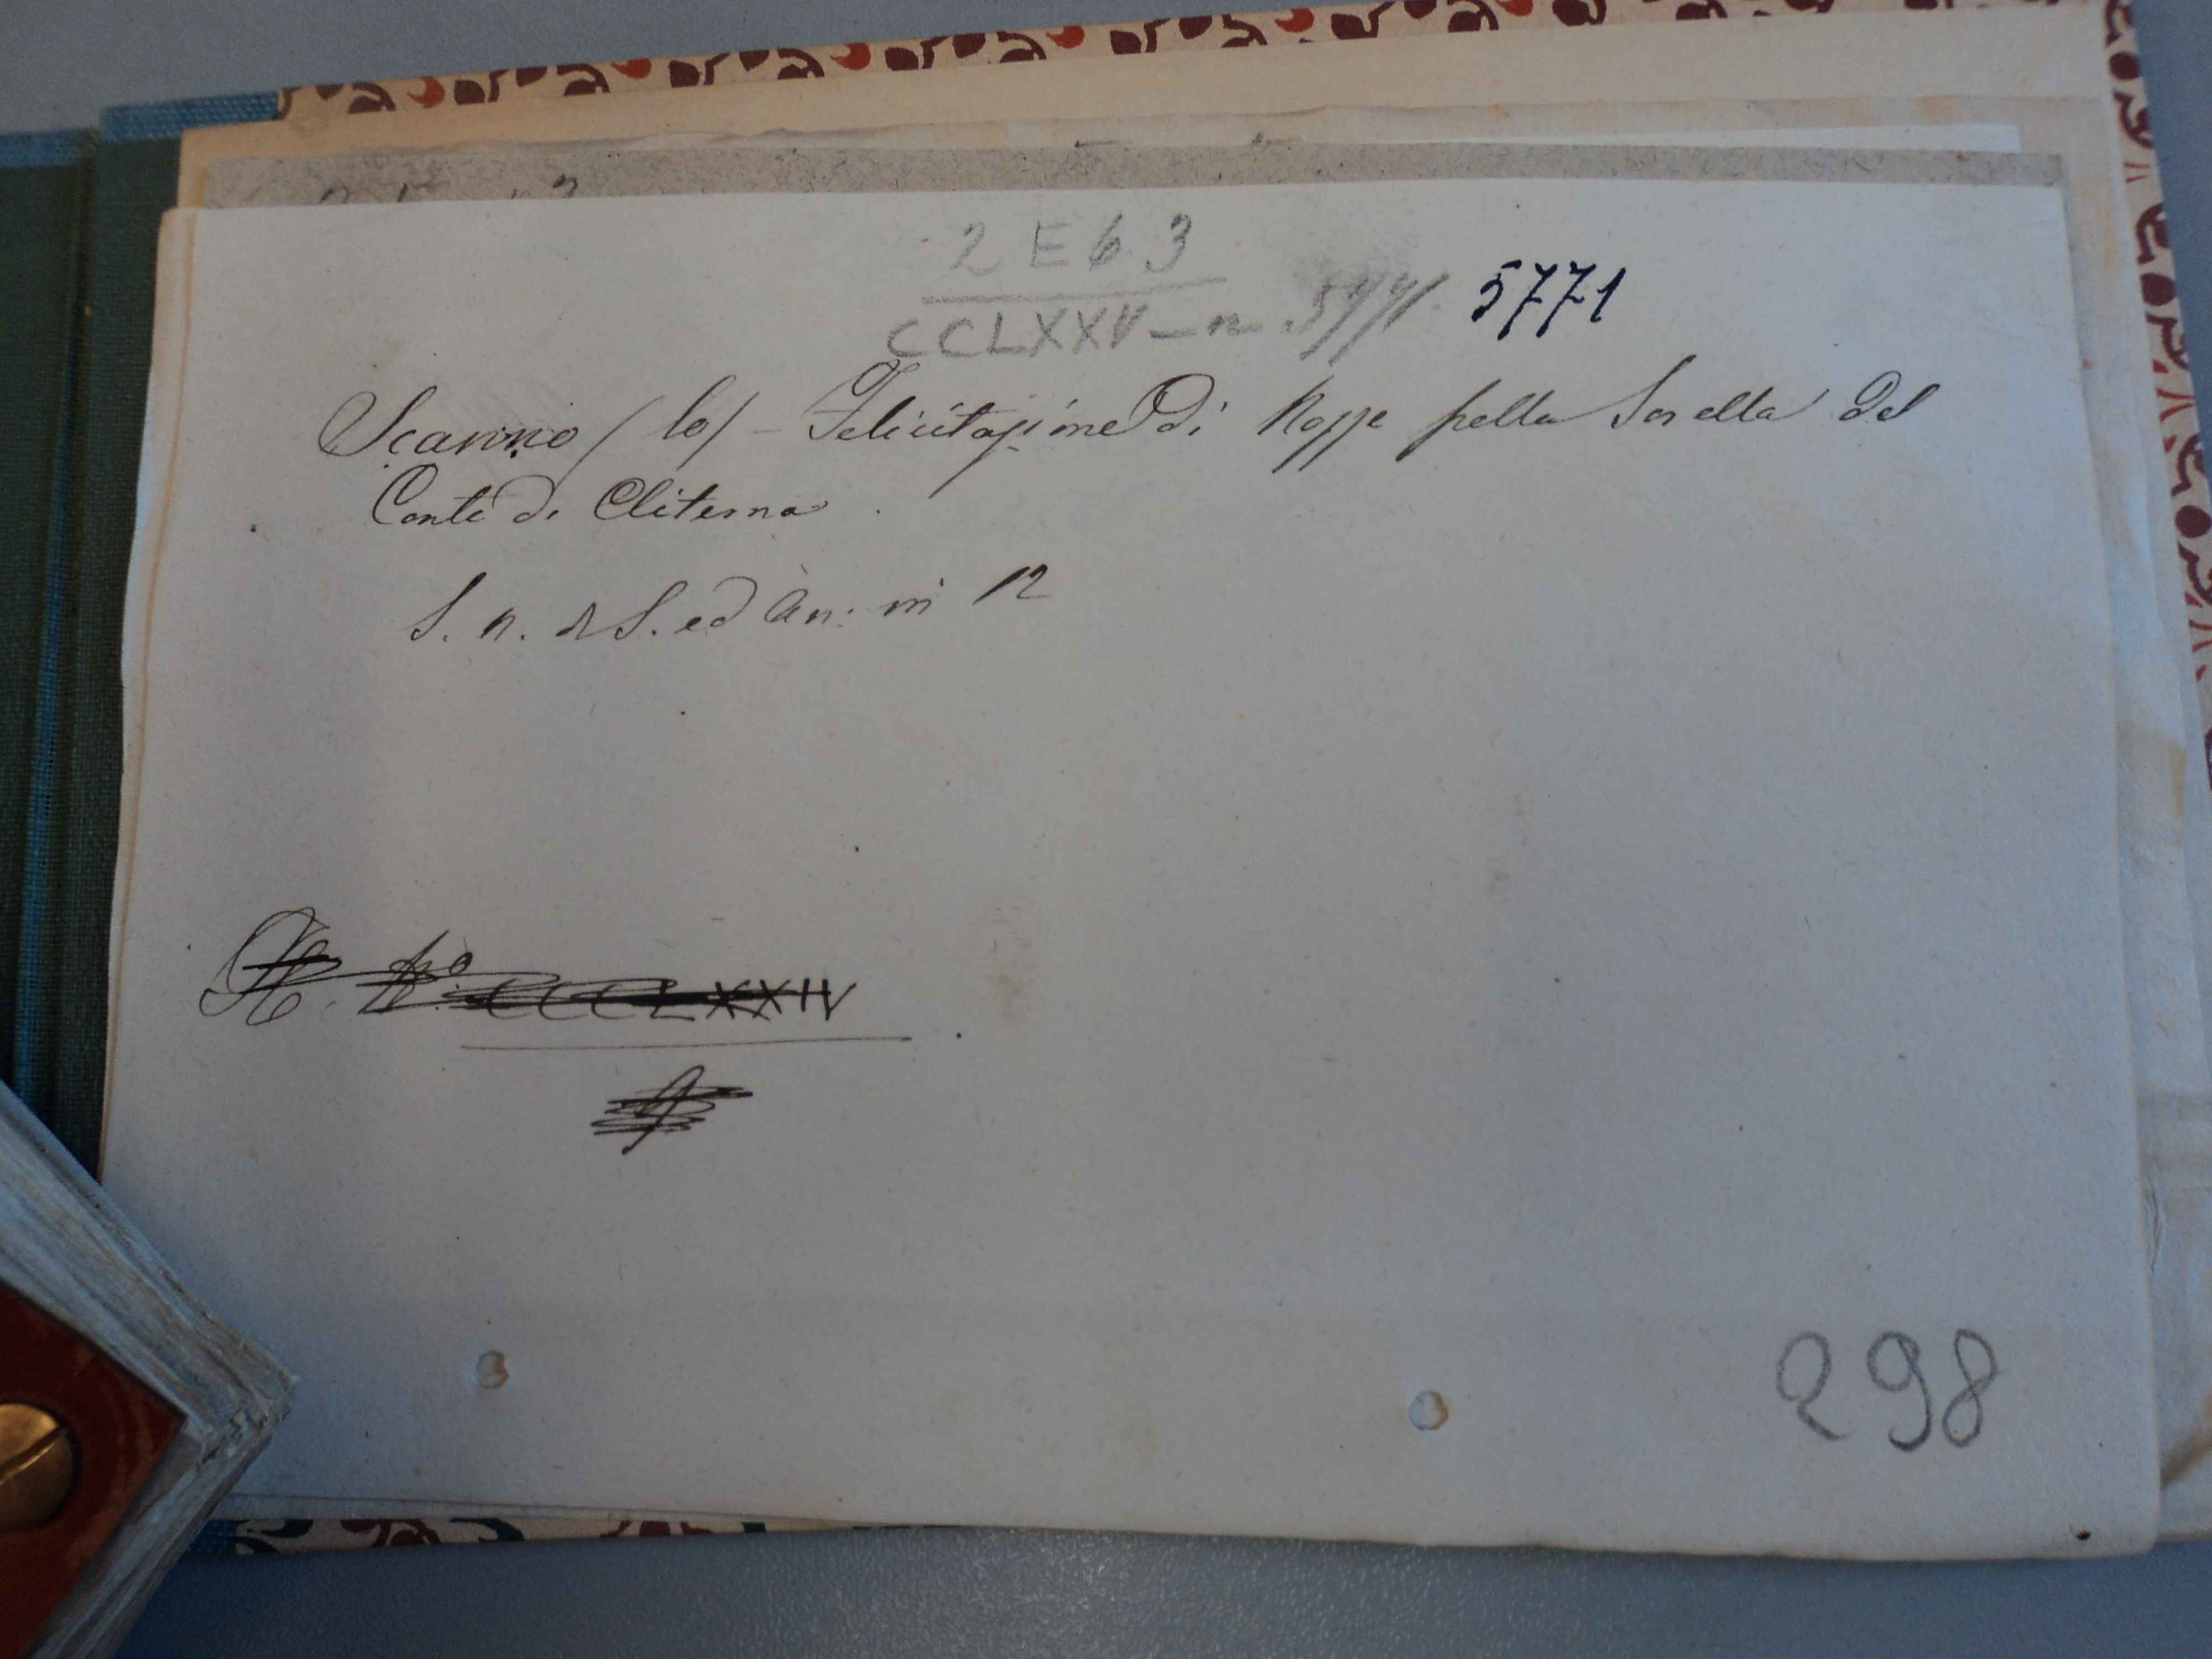 2 E 6. 3
CCLXXV - n. 5771. 5771
Scanno / lo / - Felicitazione Di Nozze pella Sorella del
Conte di Cliterna.
S. n. di S. ed An: in 12
N.º CCCLXXIV
298